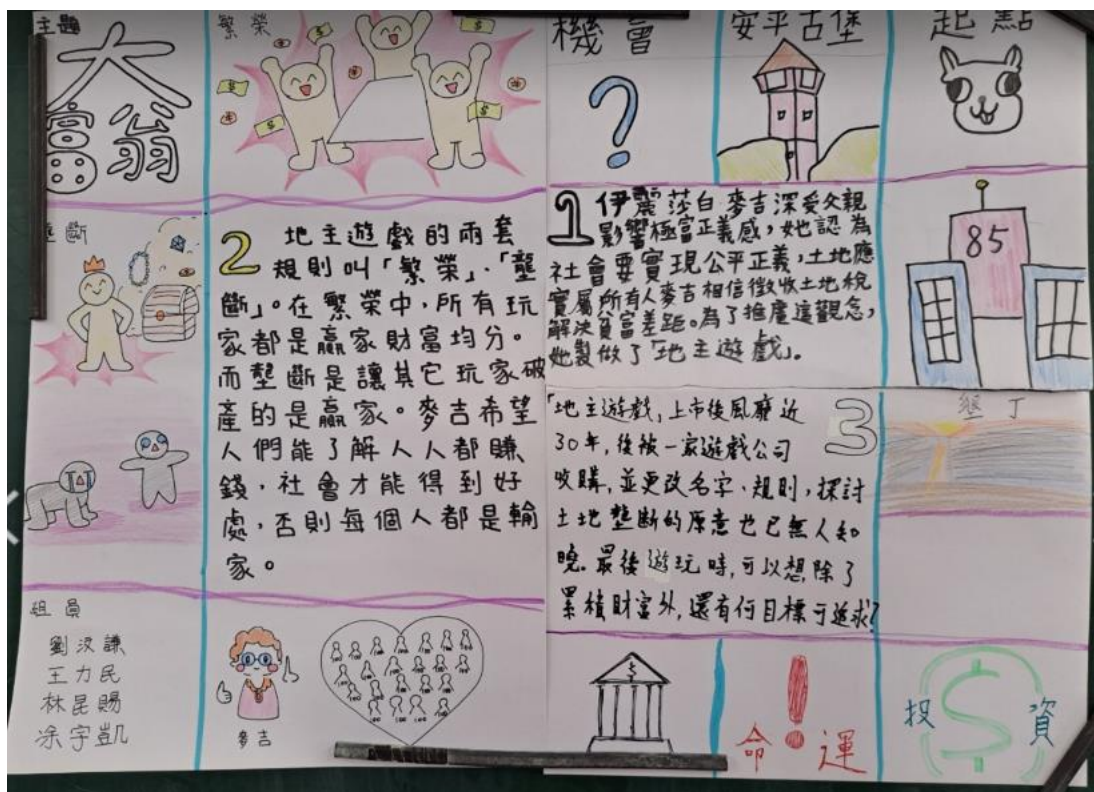 主題
大
富翁
繁榮
機會
?
安平古堡
起點
壟斷
2 地主遊戲的兩套
規則叫「繁榮」、「壟
斷」。在繁榮中,所有玩
家都是贏家財富均分。
而壟斷是讓其它玩家破
產的是贏家。麥吉希望
人們能了解人人都賺
錢,社會才能得到好
處,否則每個人都是輸
家。
1 伊麗莎白麥吉深受父親
影響極富正義感,她認為
社會要實現公平正義,土地應
實屬所有人麥吉相信徵收土地稅
解決貧富差距。為了推廣這觀念,
她製做了「地主遊戲」。
85
「地主遊戲,上市後風靡近 3
30年,後被一家遊戲公司
收購,並更改名字、規則,探討
土地壟斷的原意也已無人知
曉。最後遊玩時,可以想除了
累積財富外,還有何目標可追求?
墾丁
組員
王力民
林昆賜
涂宇凱
麥吉
命!運
投$資